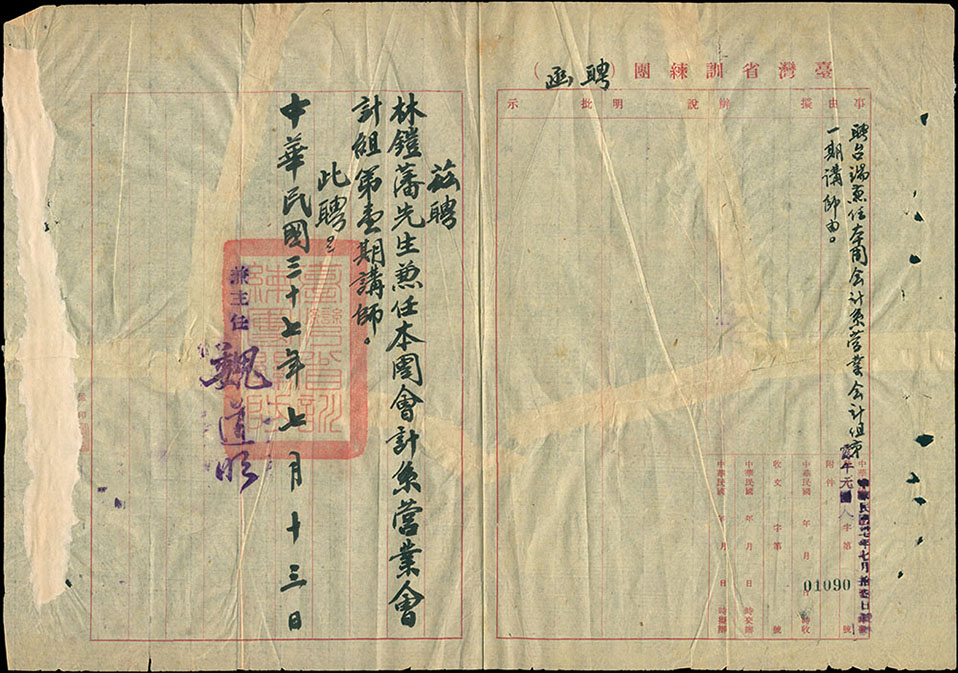 臺灣省訓練團（聘函）
事由
擬辦
說明
批示
聘台端兼任本團會計系營業會計組第
一期講師由。
中華民國卅七年七月拾叁日
字第 號
附件
中華民國 年 月 日 時收
01090
收文 字第 號
中華民國 年 月 日 時交辦
中華民國 年 月 日 時擬辦
茲聘
林鎧藩先生兼任本團會計系營業會
計組第壹期講師。
此聘
中華民國三十七年七月十三日
兼主任
魏道明